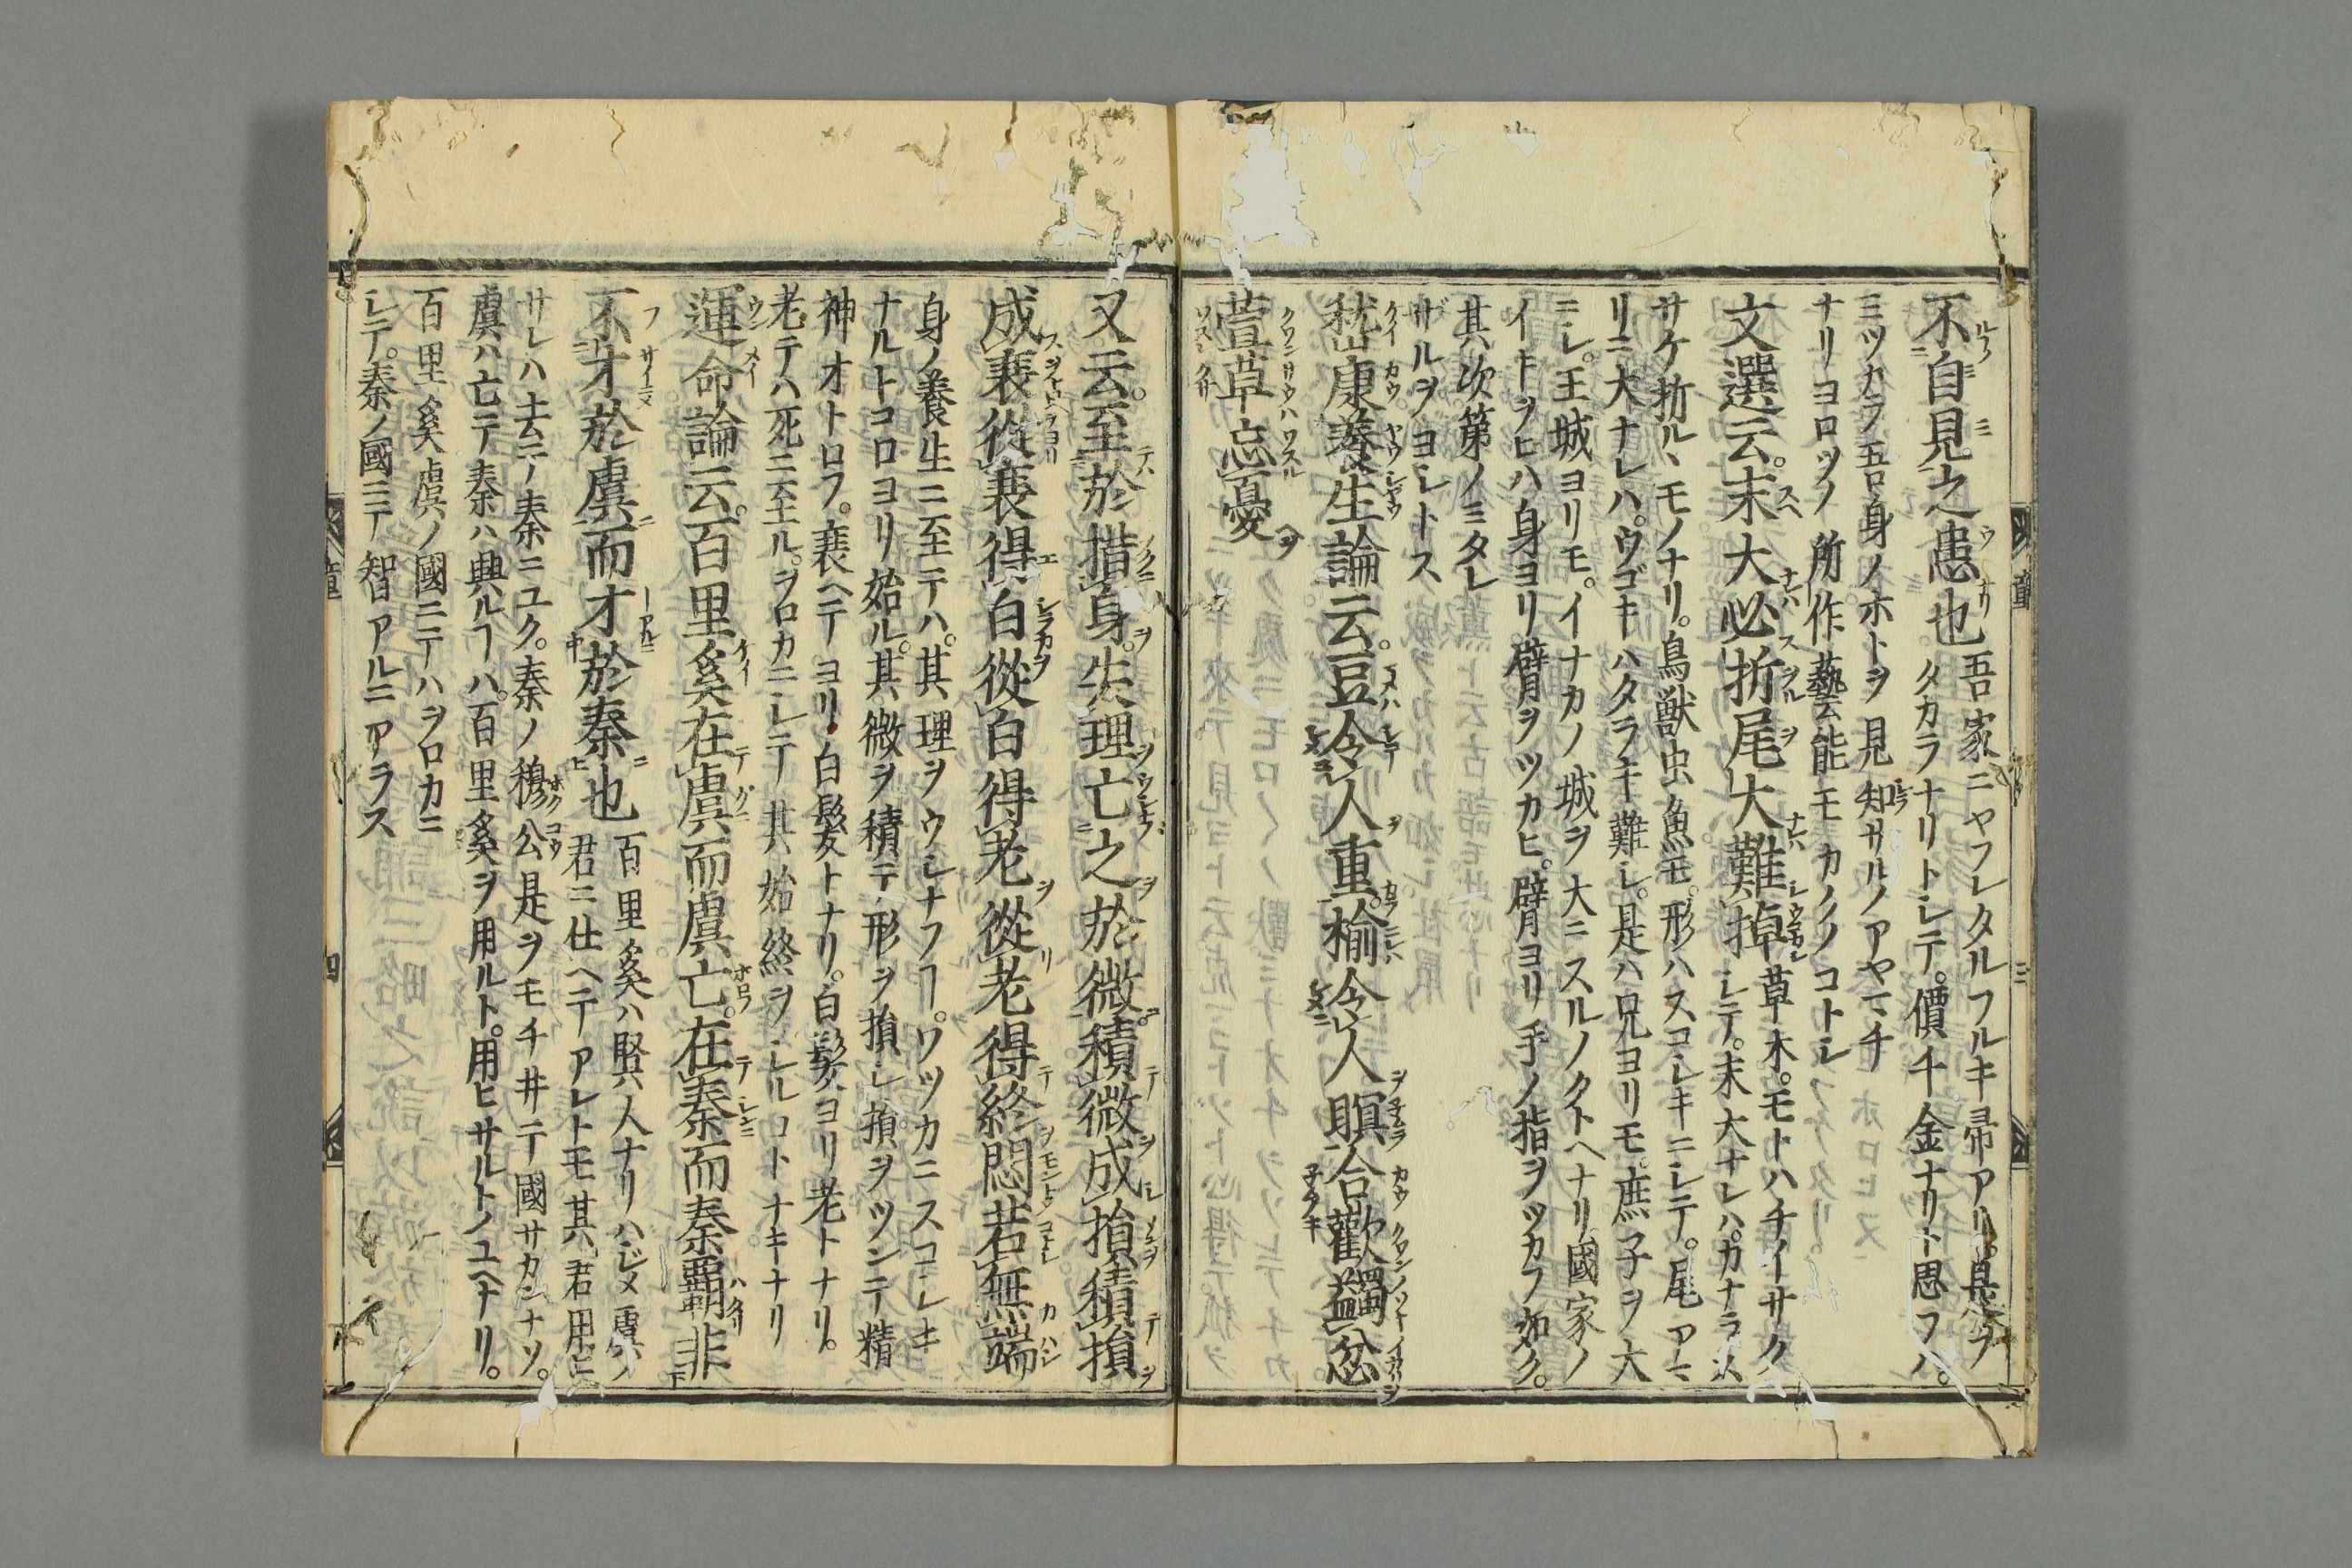 不自見之患也吾家ニヤフレタルフルキ帚アリ是ヲ
タカラナリトシテ。價千金ナリト思フハ。
ミツカラ吾身ノホトヲ見知サルノアヤマチ
ナリヨロツノ所作藝能モカノノコトシ
文選云。末大必折尾大難掉草木。モトハチイサク
シテ。末大ナレハ。カナラス
サケ折ルヽモノナリ。鳥獣虫魚モ。形ハスコシキニシテ。尾アマ
リニ大ナレハ。ウゴキハタラキ難シ。是ハ兄ヨリモ。庶子ヲ大
ニシ。王城ヨリモ。イナカノ城ヲ大ニスルノタトヘナリ。國家ノ
イキヲヒハ身ヨリ。臂ヲツカヒ。臂ヨリ手ノ指ヲツカフ如ク。
其次第ノミタレ
サルヲヨシトス
嵆康養生論云。豆令人重。楡令人瞑合歡蠲忿
萱草忘憂
又云。至於措身。失理亡之於微。積微成損積損
成衰從衰得白從白得老從老得終悶若無端
身ノ養生ニ至テハ。其理ヲウシナフヿ。ワツカニスコシキ
ナルトコロヨリ始ル。其微ヲ積テ形ヲ損シ損ヲツンテ精
神オトロフ。衰ヘテヨリ白髪トナリ。白髪ヨリ老トナリ。
老テハ死ニ至ル。ヲロカニシテ其始終ヲシルコトナキナリ
運命論云。百里奚在虞而虞亡。在秦而秦覇非
不才於虞而才於秦也百里奚ハ賢人ナリハジメ虞ノ
君ニ仕ヘテアレトモ其君用ヒ
サレハ去テ秦ニユク。秦ノ穆公是ヲモチ井テ國サカンナリ。
虞ハ亡テ秦ハ興ルヿハ。百里奚ヲ用ルト。用ヒサルトノユヘナリ。
百里奚虞ノ國ニテハヲロカニ
シテ。秦ノ國ニテ智アルニアラス